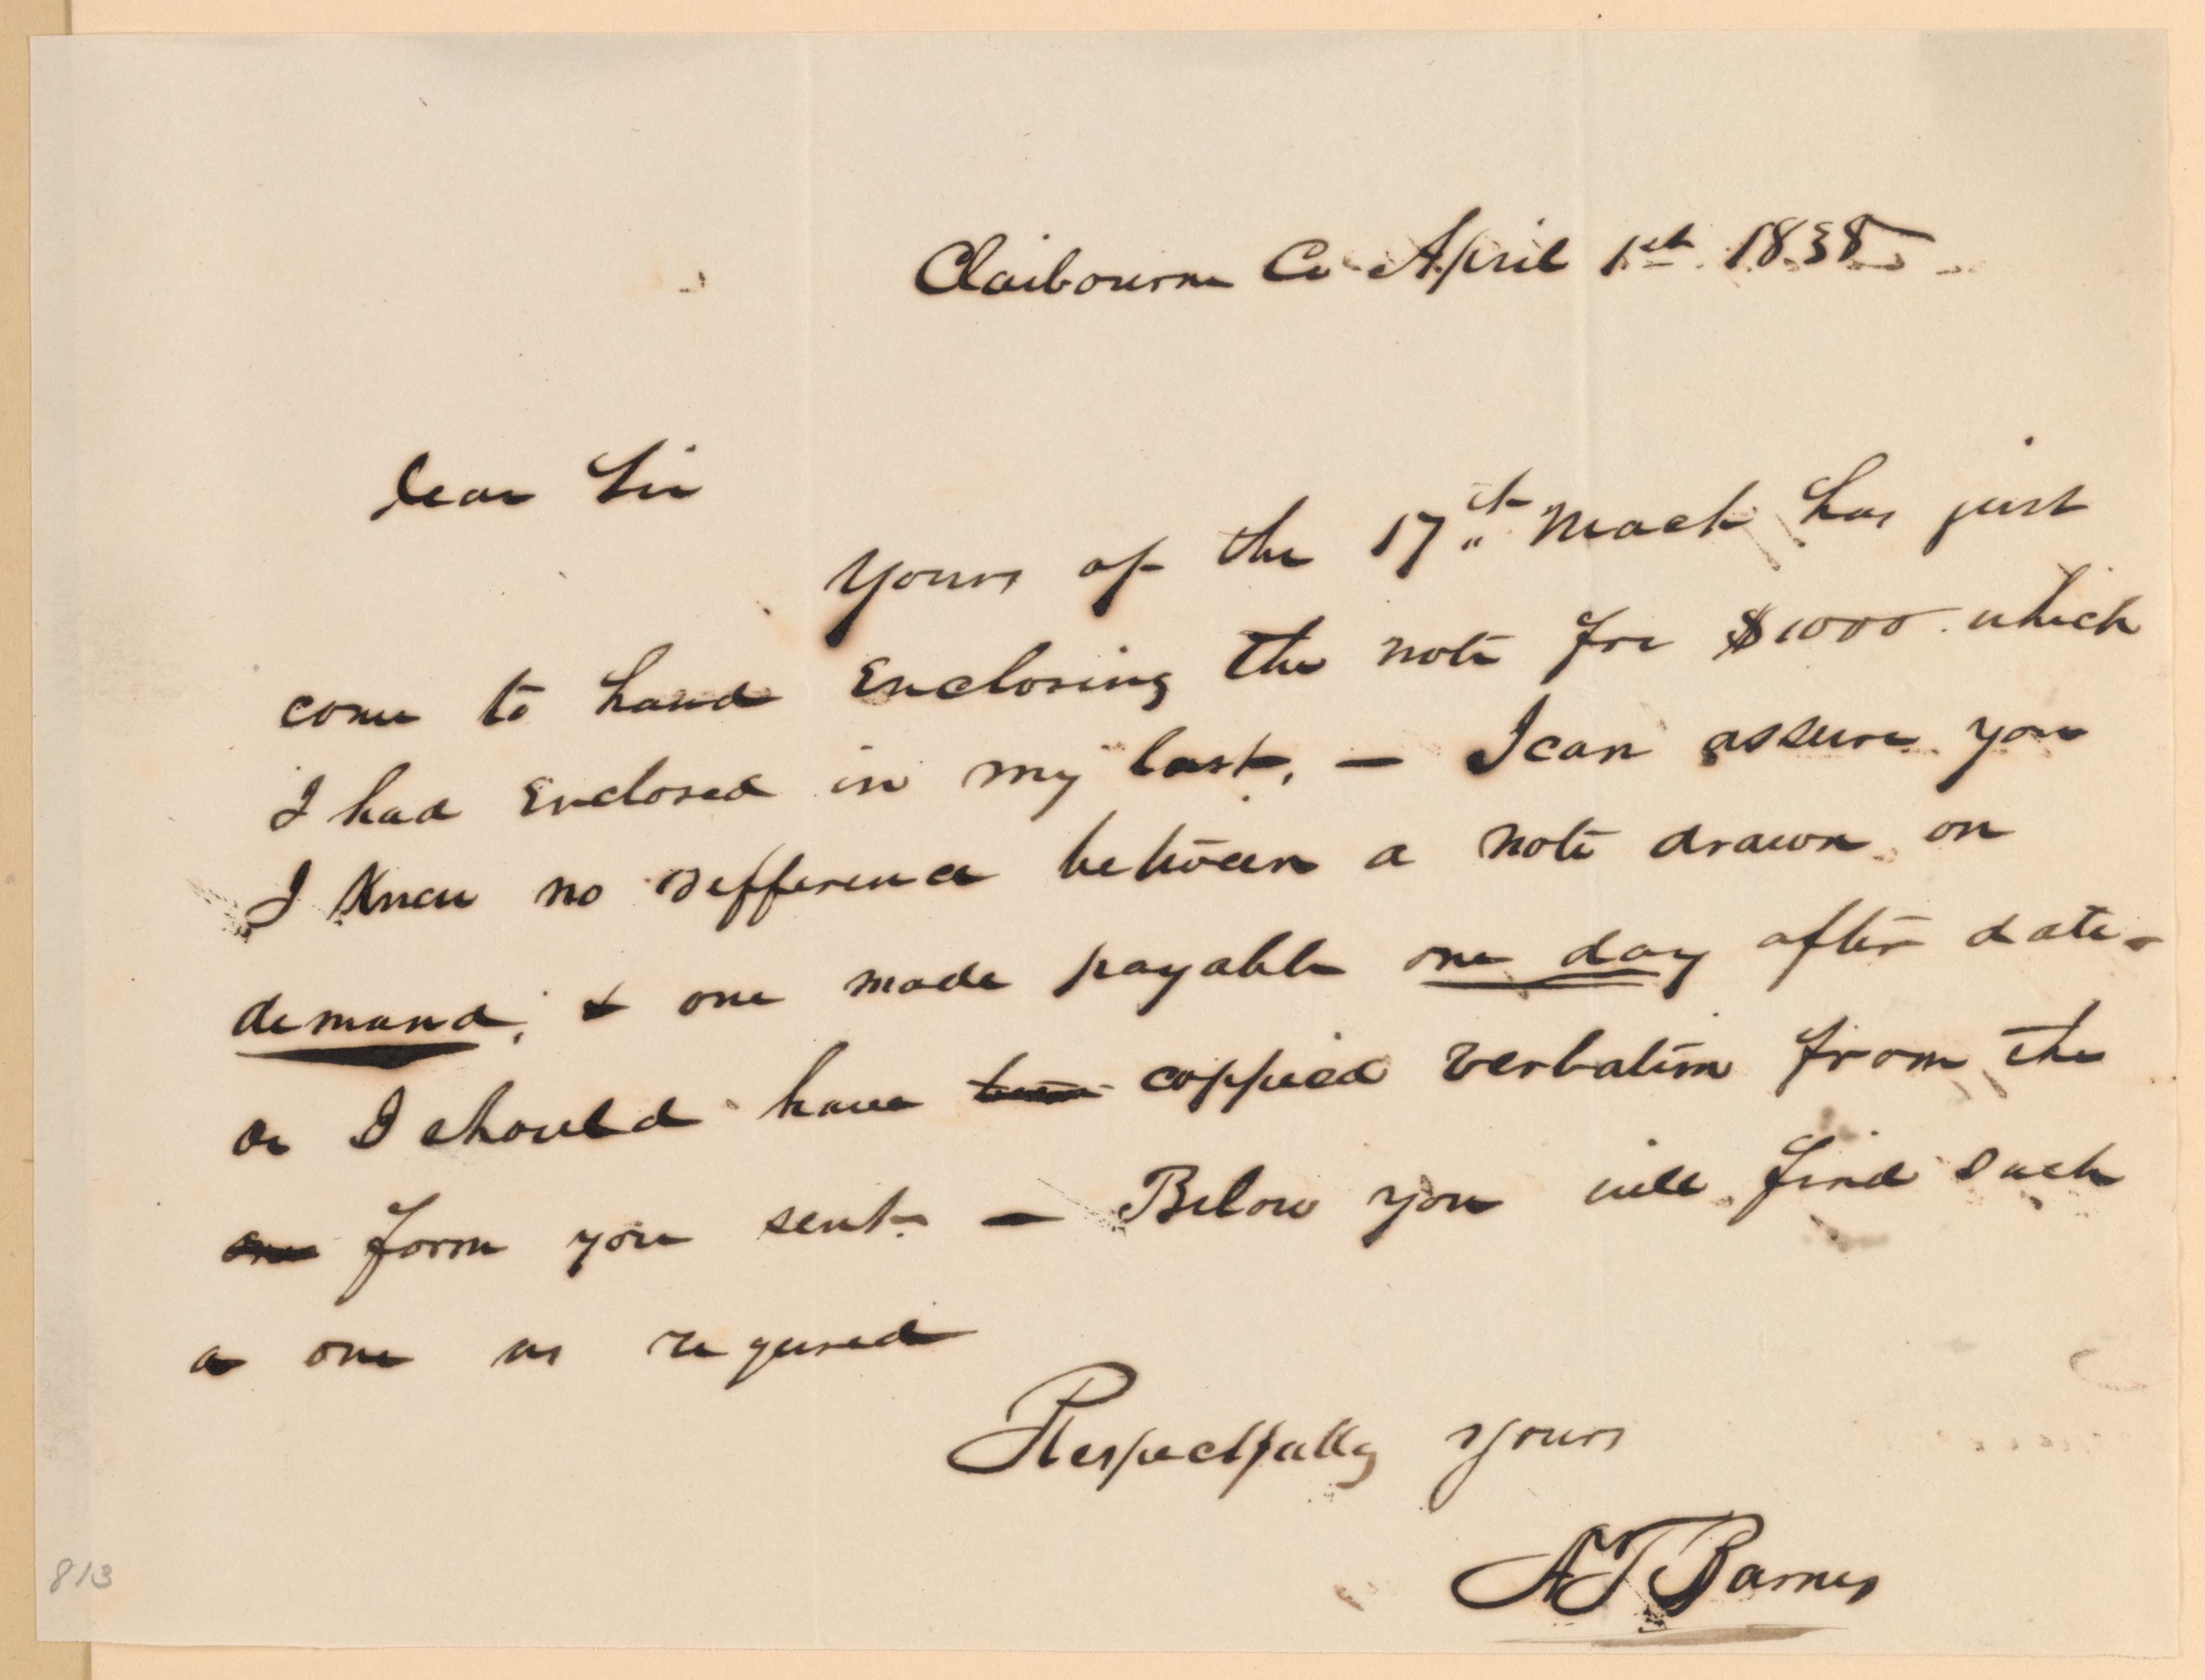 Claibourne Co April 1st 1835
Dear Sir
Yours of the 17th Mach has just
come to hand Enclosing the note for $1000 which
I had Enclosed in my last, — I can assure you
I knew no defference between a note drawn on
demand, & one made payable one day after date -
or I should have coppied verbatim from the
form you sent. — Below you will find such
a one as requred
Respectfully yours
A T Barnes
813